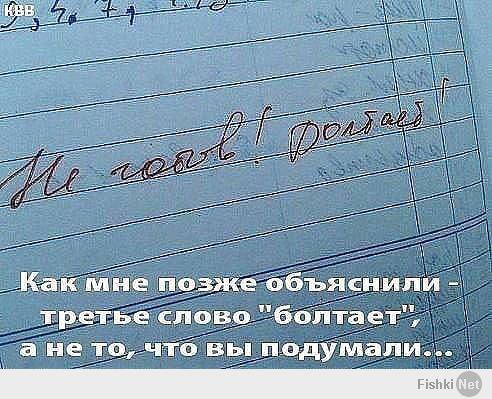 КВВ
Не готов! Болтает!
Как мне позже объяснили -
третье слово "болтает",
а не то, что вы подумали...
Fishki Net